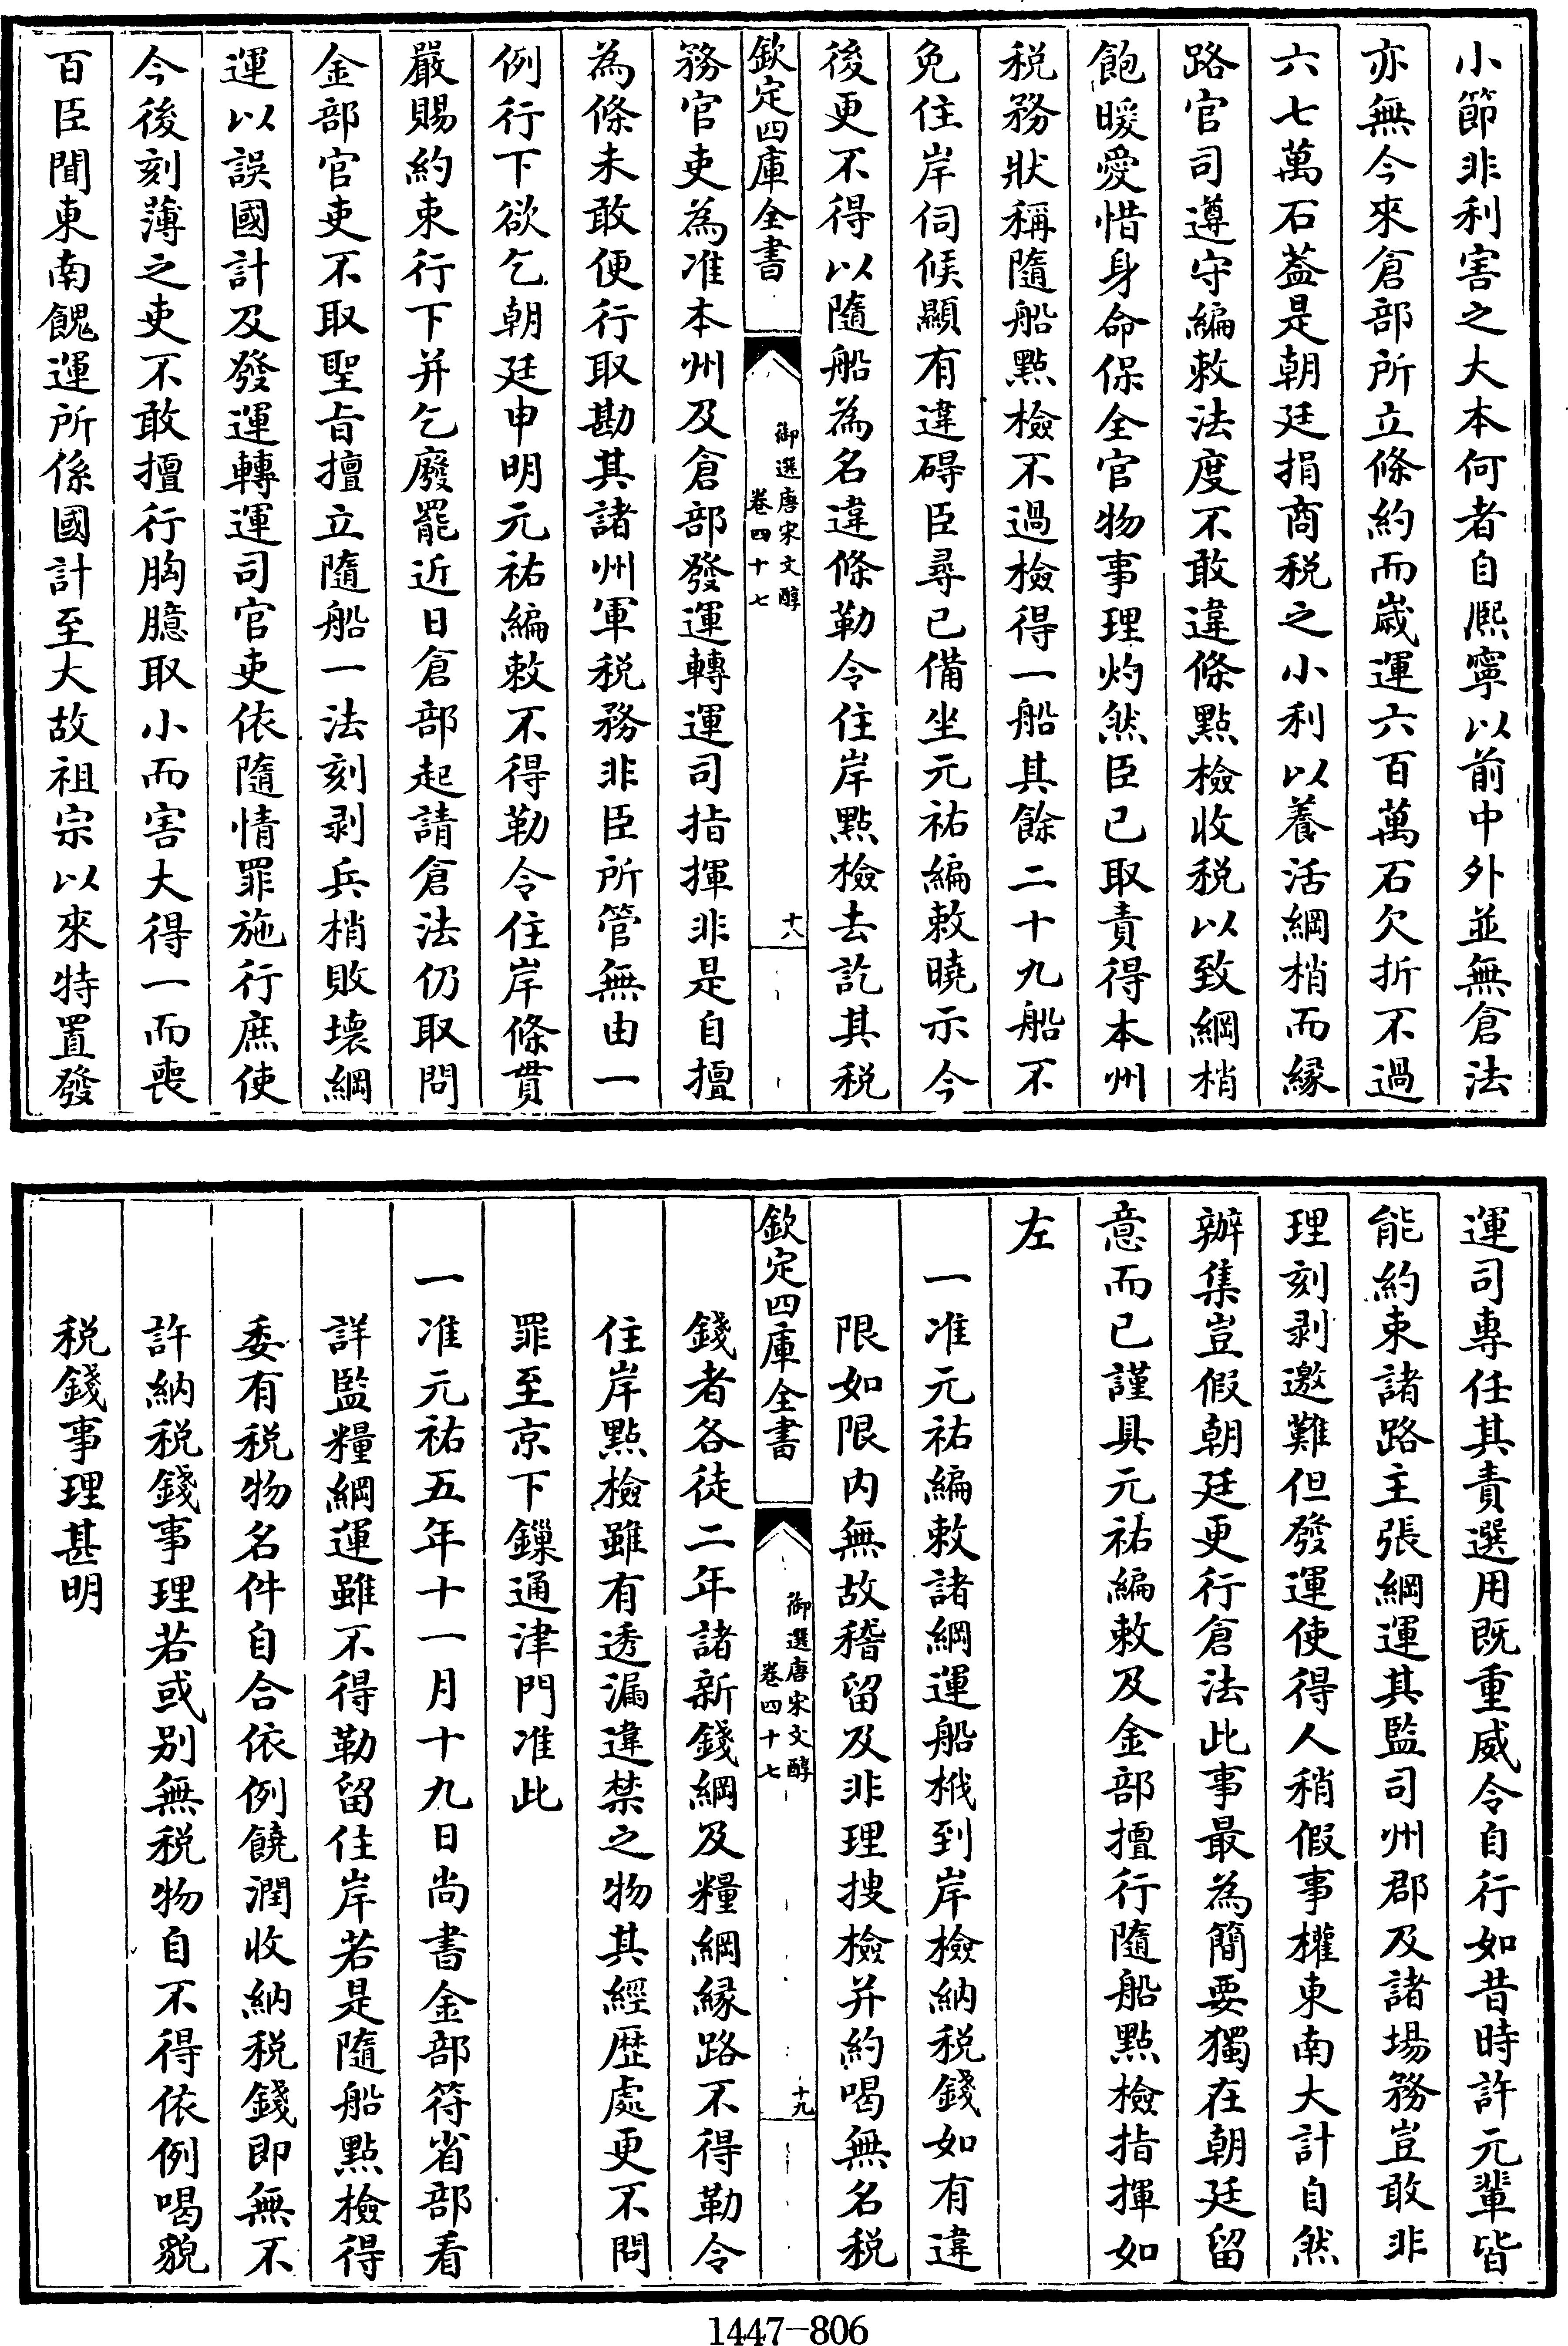 小節非利害之大本何者自熈寧以前中外並無倉法
亦無今來倉部所立條約而嵗運六百萬石欠折不過
六七萬石葢是朝廷捐商税之小利以養活綱梢而縁
路官司遵守編敕法度不敢違條點檢收税以致綱梢
飽暖愛惜身命保全官物事理灼然臣已取責得本州
税務狀稱隨船點檢不過檢得一船其餘二十九船不
免住岸伺候顯有違碍臣尋已備坐元祐編敕曉示今
後更不得以隨船為名違條勒令住岸點檢去訖其税
欽定四庫全書
御選唐宋文醇
卷四十七
十八
務官吏為准本州及倉部發運轉運司指揮非是自擅
為條未敢便行取勘其諸州軍税務非臣所管無由一
例行下欲乞朝廷申明元祐編敕不得勒令住岸條貫
嚴賜約束行下并乞廢罷近日倉部起請倉法仍取問
金部官吏不取聖旨擅立隨船一法刻剥兵梢敗壊綱
運以誤國計及發運轉運司官吏依隨情罪施行庶使
今後刻薄之吏不敢擅行胸臆取小而害大得一而喪
百臣聞東南餽運所係國計至大故祖宗以來特置發
運司專任其責選用既重威令自行如昔時許元輩皆
能約束諸路主張綱運其監司州郡及諸場務豈敢非
理刻剥邀難但發運使得人稍假事權東南大計自然
辦集豈假朝廷更行倉法此事最為簡要獨在朝廷留
意而已謹具元祐編敕及金部擅行隨船點檢指揮如
左
一准元祐編敕諸綱運船栰到岸檢納税錢如有違
限如限内無故稽留及非理搜檢并約喝無名税
欽定四庫全書
御選唐宋文醇
卷四十七
十九
錢者各徒二年諸新錢綱及糧綱縁路不得勒令
住岸點檢雖有透漏違禁之物其經歴處更不問
罪至京下鏁通津門准此
一准元祐五年十一月十九日尚書金部符省部看
詳監糧綱運雖不得勒留住岸若是隨船點檢得
委有税物名件自合依例饒潤收納税錢即無不
許納税錢事理若或别無税物自不得依例喝貌
税錢事理甚明
1447-806